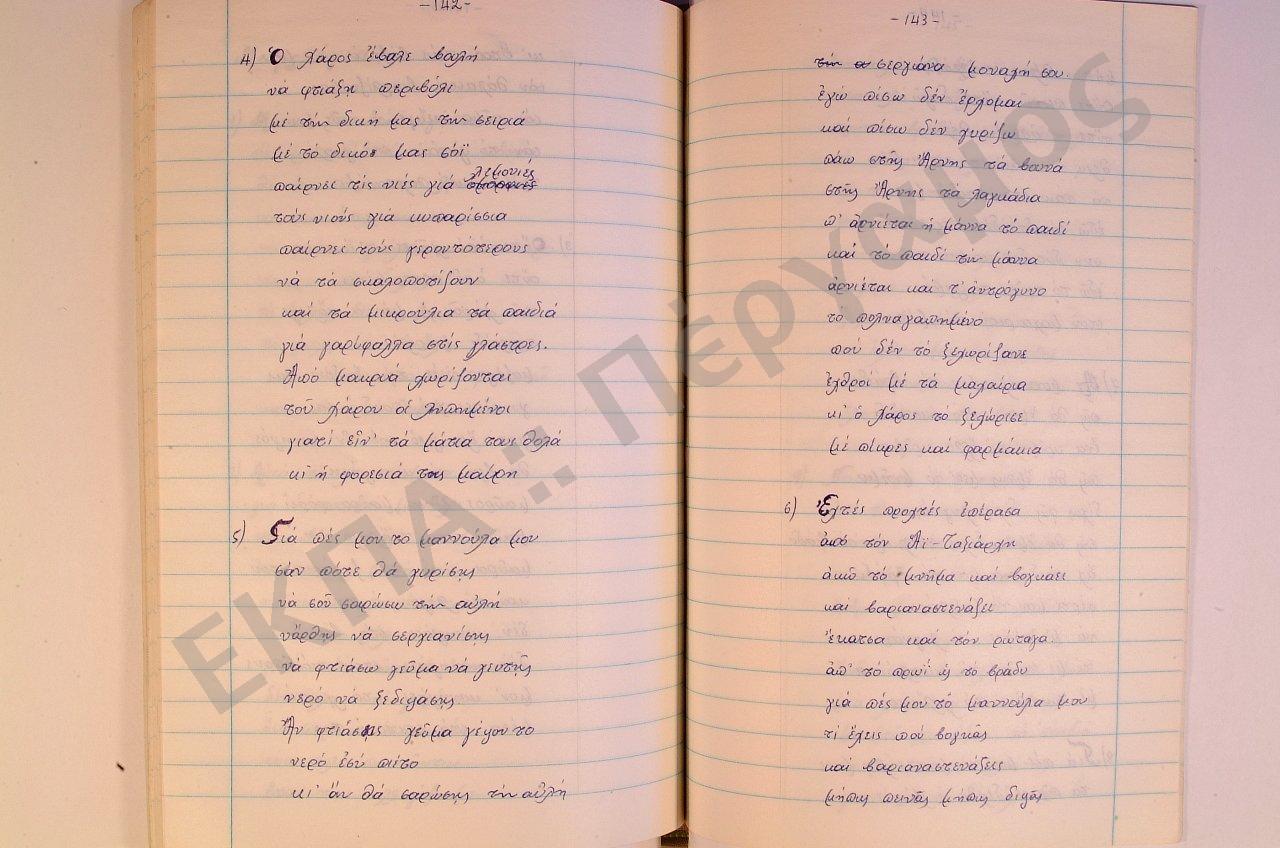 -142-
4) Ὁ Χάρος ἔβαλε βουλή
νά φτιάξη περιβόλι
μέ τήν δική μας τήν σειρά
μέ τό δικό μας σόϊ
λεμονιές
παίρνει τίς νιές γιά
τούς νιούς γιά κυπαρίσσια
παίρνει τούς γεροντότερους
νά τά σκαλοποτίζουν
καί τά μικρούλια τά παιδιά
γιά γαρίφαλλα στίς γλάστρες.
Ἀπό μακρυά χωρίζονται
τοῦ Χάρου οἱ λυπημένοι
γιατί εἶν' τά μάτια τους θολά
κι ἡ φορεσιά τους μαύρη
5) Γιά πές μου το μαννούλα μου
σάν πότε θά γυρίσης
νά σοῦ σαρώσω τήν αὐλή
νἄρθης νά σεργιανίσης
νά φτιάσω γεῦμα νά γευτῆς
νερό νά ξεδιψάσης
Ἄν φτιάσης γεῦμα γέψου το
νερό ἐσύ πιέτο
κι' ἄν θά σαρώσης τήν αὐλή
-143-
σεργιάνα μοναχή σου.
ἐγώ πίσω δέν ἔρχομαι
καί πίσω δέν γυρίζω
πάω στῆς Ἄρνης τά βουνά
στῆς Ἄρνης τά λαγκάδια
π' ἀρνιέται ἡ μάννα τό παιδί
καί τό παιδί τήν μάννα
ἀρνιέται καί τ' ἀντρόγυνο
τό πολυαγαπημένο
πού δέν τό ξεχωρίζανε
ἐχθροί μέ τά μαχαίρια
κι' ὁ Χάρος τό ξεχώρισε
μέ πίκρες καί φαρμάκια
6) Ἐχτές προχτές ἐπέρασα
ἀπό τόν Ἁϊ-Ταξιάρχη
ἀκῶ τό μνῆμα καί βογκάει
καί βαριαναστενάζει
Ἔκατσα καί τόν ρώταγα.
ἀπ' τό πρωΐ ὡς τό βράδυ
γιά πές μου τό μαννούλα μου
τί ἔχεις πού βογκᾶς
καί βαριαναστενάζεις
μήπως πεινᾶς μήπως διψᾶς
ΕΚΠΑ :: Πέργαμος